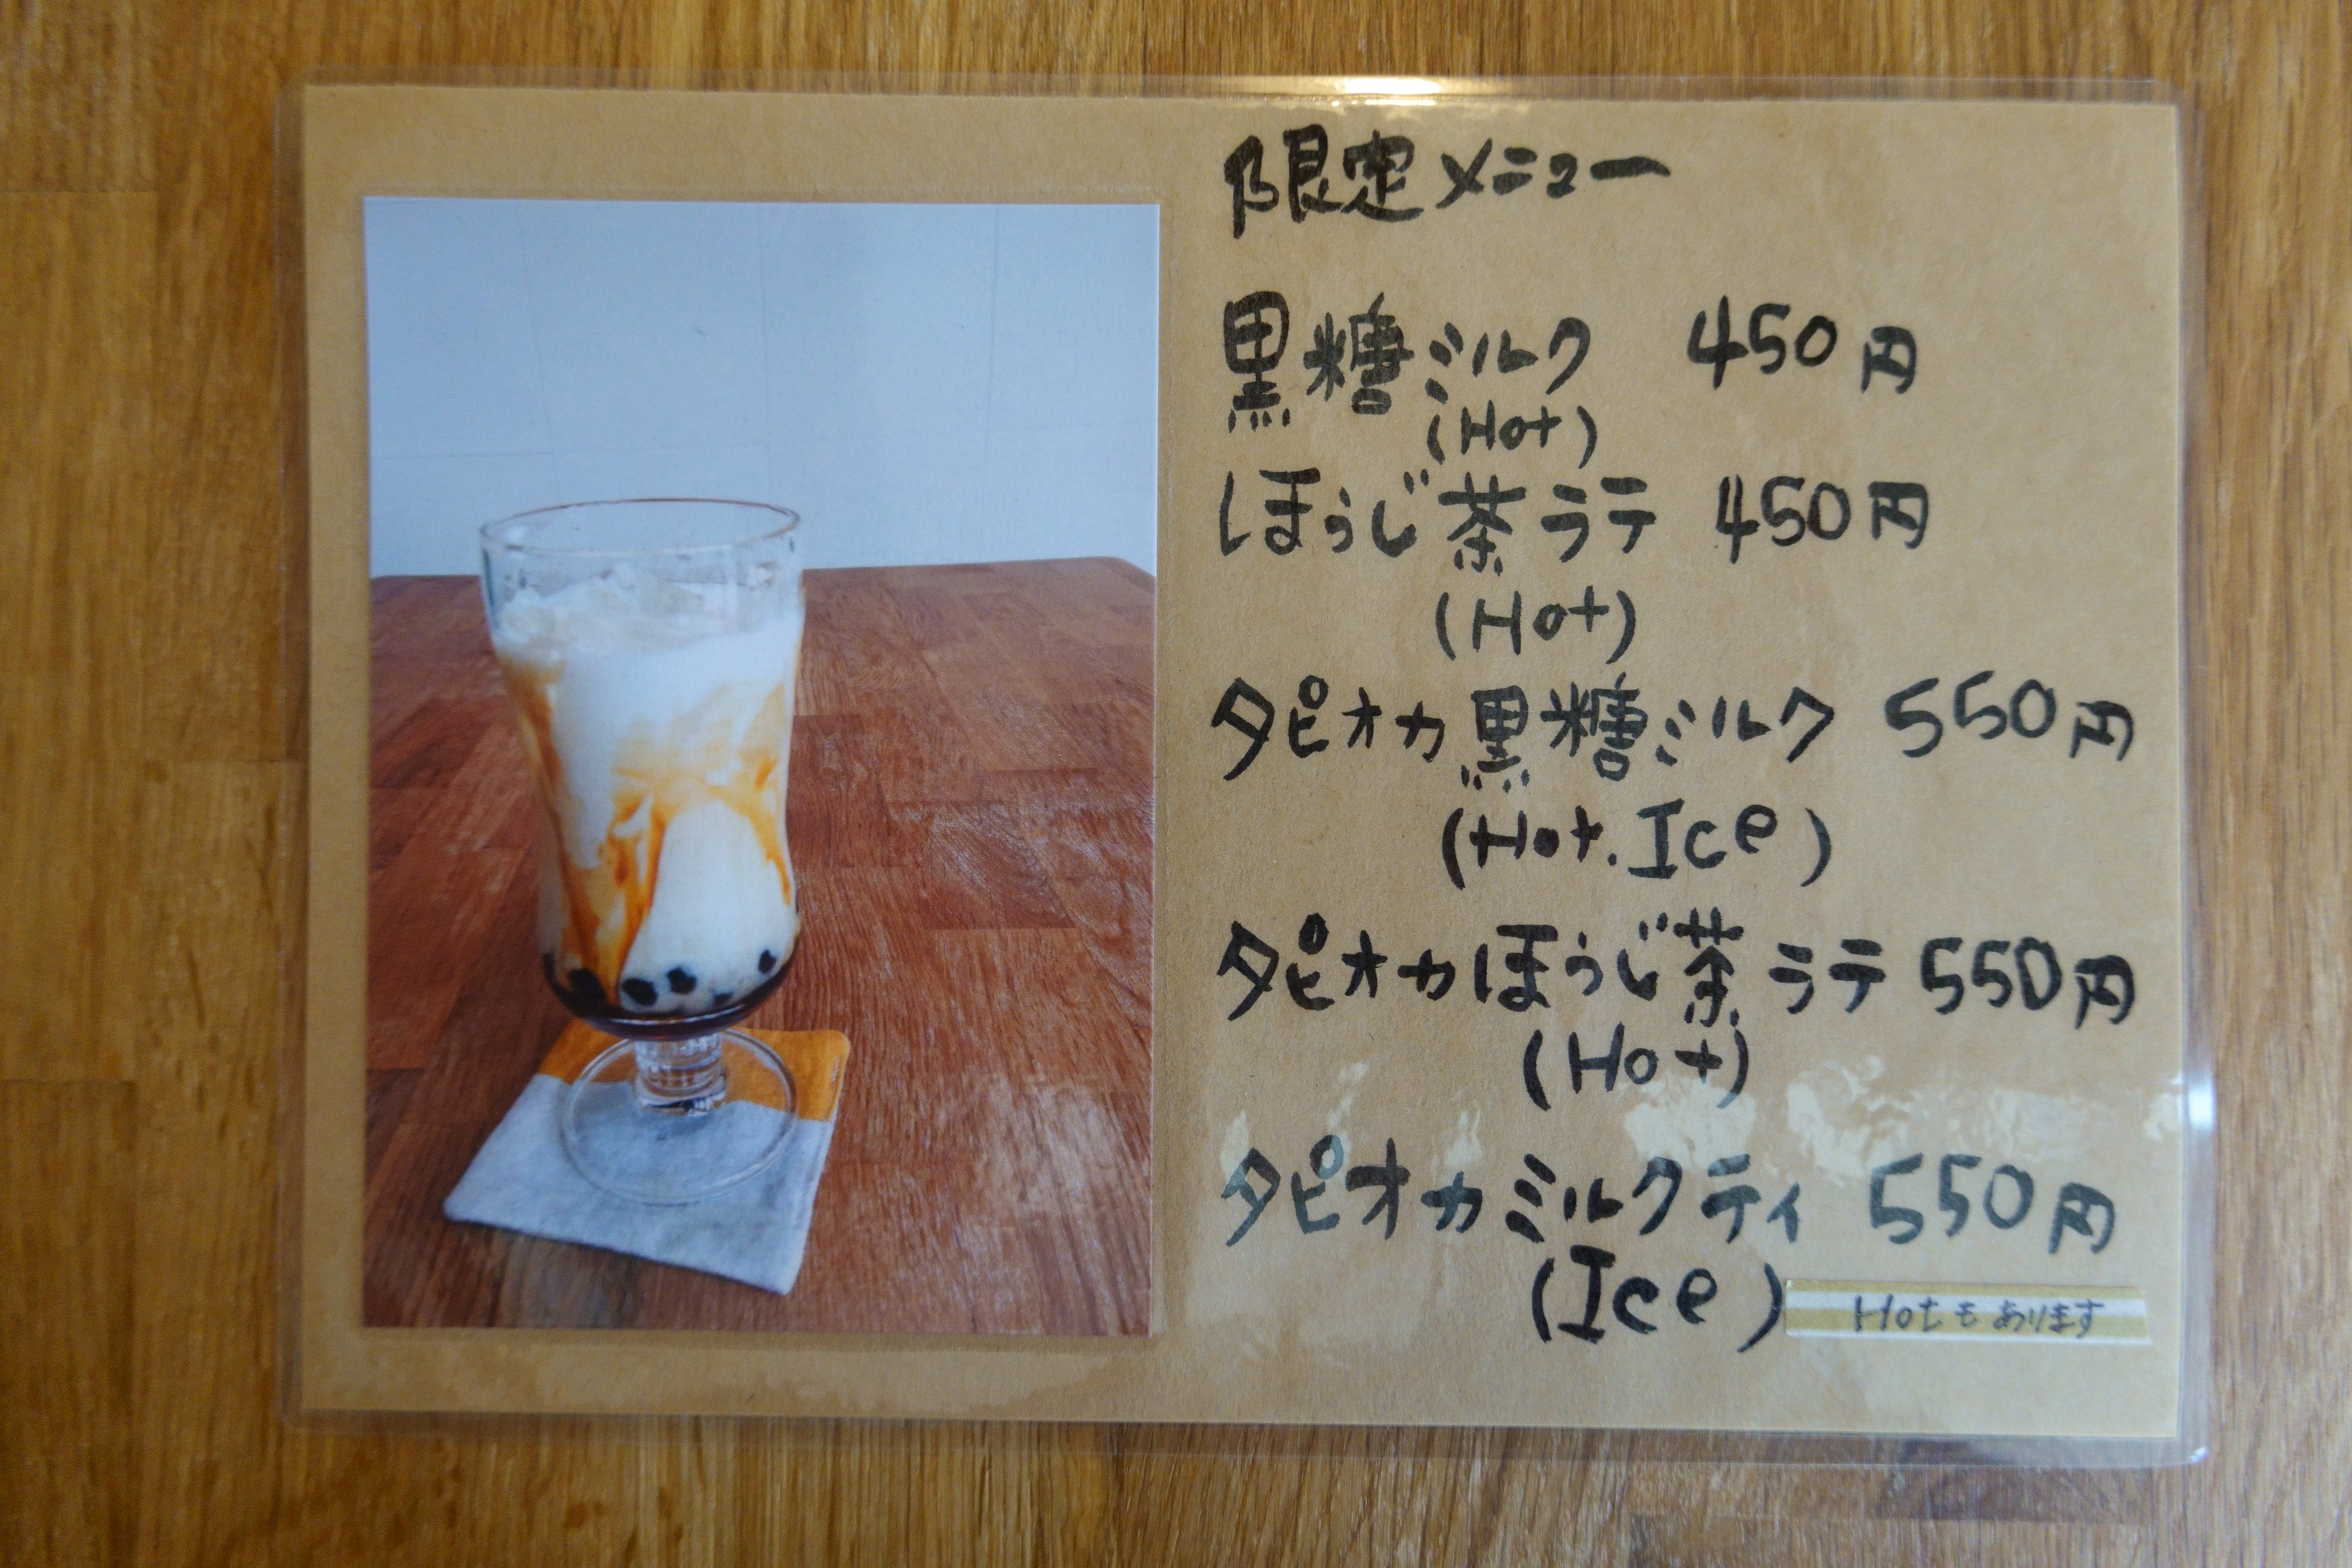 限定メニュー
黒糖ミルク 450円
(Hot)
ほうじ茶ラテ 450円
(Hot)
タピオカ黒糖ミルク 550円
(Hot.Ice)
タピオカほうじ茶ラテ 550円
(Hot)
タピオカミルクティ 550円
(Ice) Hotもあります